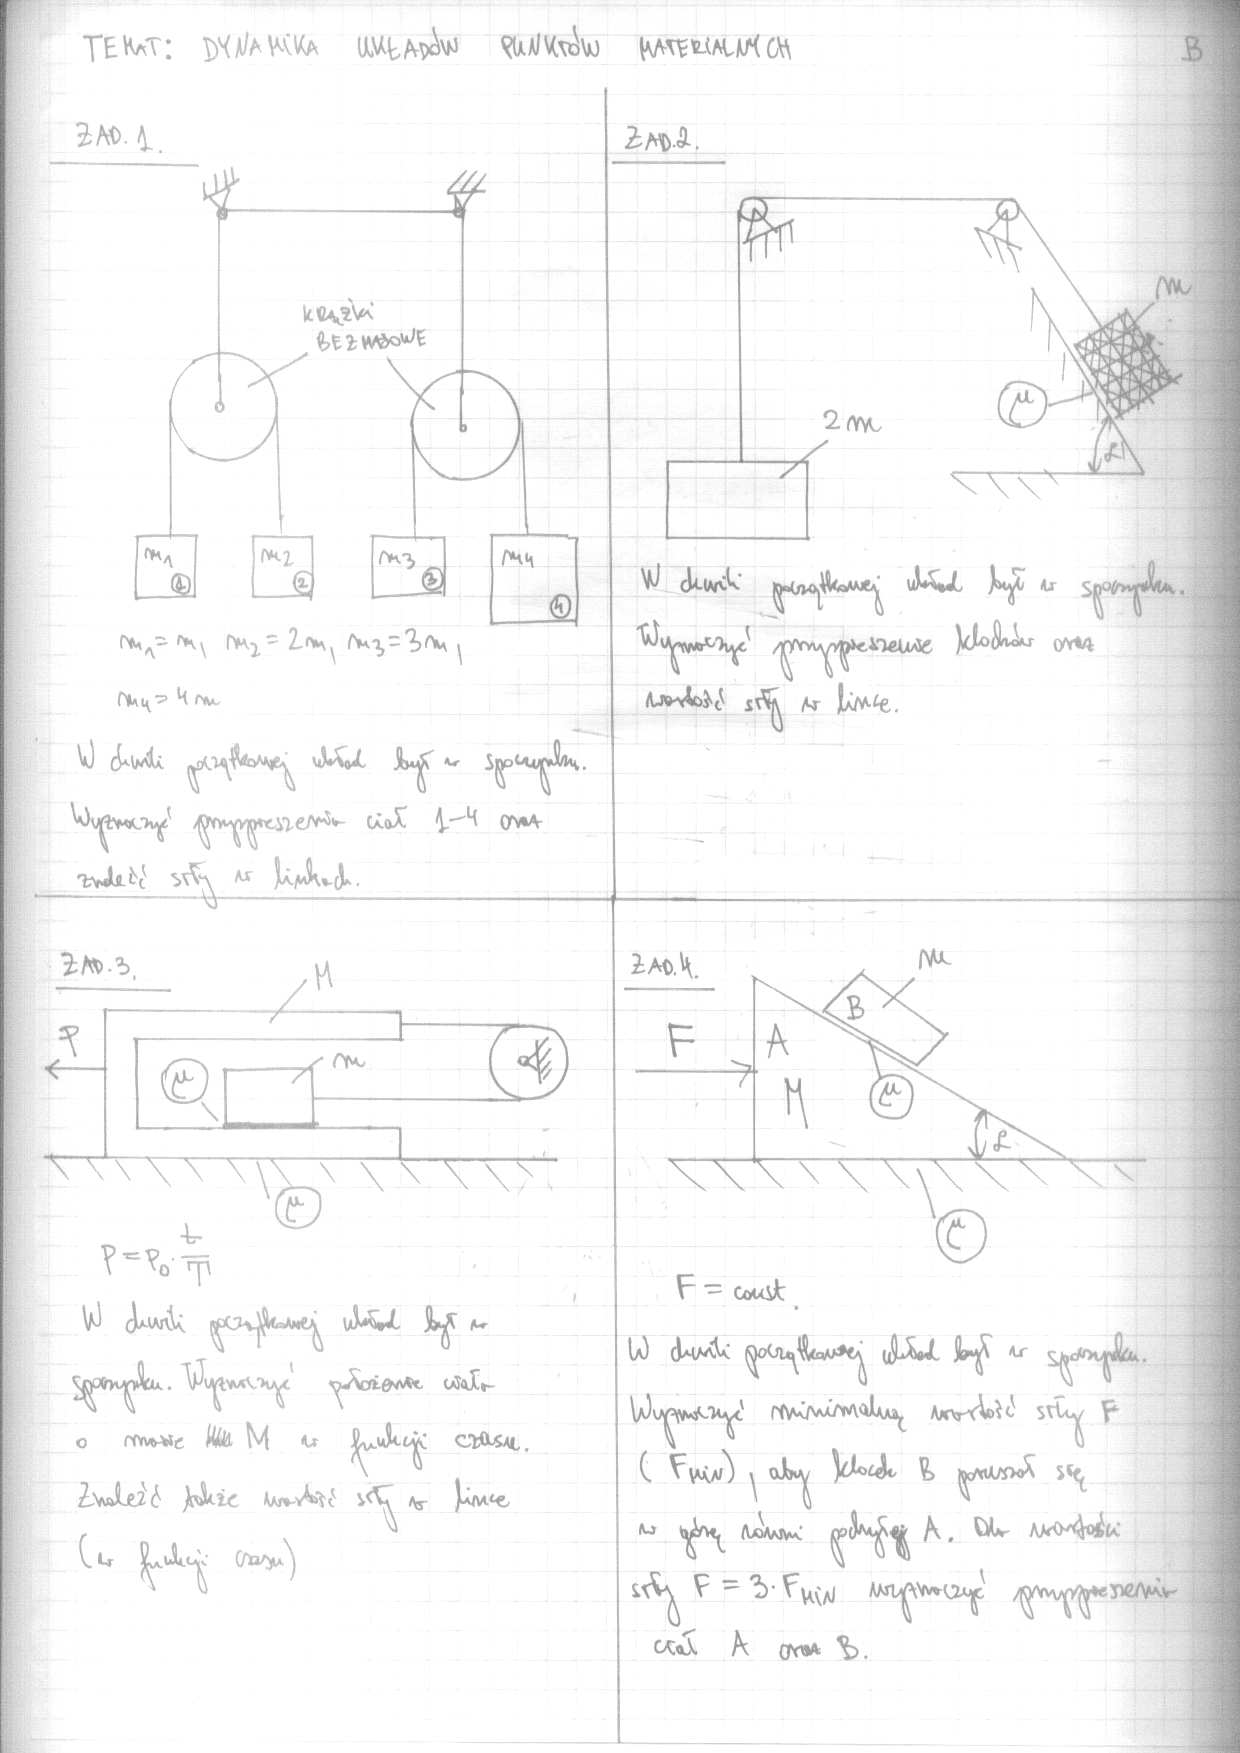 TEMAT: DYNAMIKA UKŁADÓW PUNKTÓW MATERIALNYCH
B
ZAD. 1.
KRĄŻKI
BEZMASOWE
m1
1
m2
2
m3
3
m4
4
m1 = m, m2 = 2m, m3 = 3m,
m4 = 4m
W chwili początkowej układ był w spoczynku.
Wyznaczyć przyspieszenia ciał 1–4 oraz
znaleźć siły w linkach.
ZAD.2.
m
μ
2m
α
W chwili początkowej układ był w spoczynku.
Wyznaczyć przyspieszenie klocków oraz
wartość siły w lince.
ZAD.3.
M
P
m
μ
μ
P = P0 · t/T
W chwili początkowej układ był w
spoczynku. Wyznaczyć położenie ciała
o masie M w funkcji czasu.
Znaleźć także wartość siły w lince
(w funkcji czasu)
ZAD.4.
m
B
F
A
M
μ
α
μ
F = const.
W chwili początkowej układ był w spoczynku.
Wyznaczyć minimalną wartość siły F
(FMIN), aby klocek B poruszał się
w górę równi pochyłej A. Dla wartości
siły F = 3·FMIN wyznaczyć przyspieszenia
ciał A oraz B.